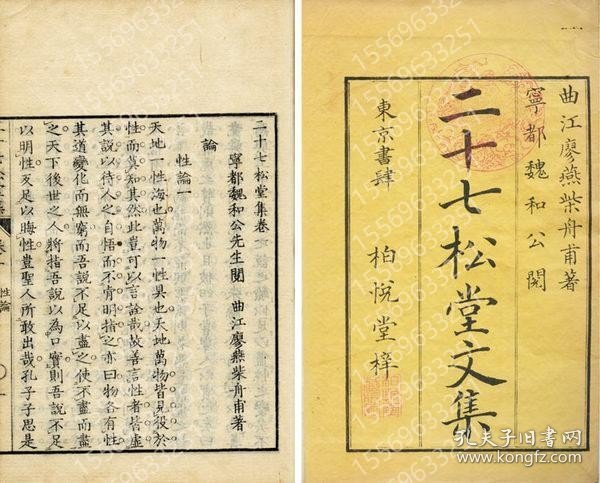 曲江廖燕柴舟甫著
寧都魏和公閱
二十七松堂文集
東京書肆 柏悅堂梓
二十七松堂集卷
寧都魏和公先生閱 曲江廖燕柴舟甫著
論
性論一
天地一性海也萬物一性具也天地萬物皆見役於
性而莫知其然此豈可以言詮哉故善言性者皆虛
其說以待人之自悟而不肯明指之亦曰物各有性
其道變化而無窮而吾說不足以盡之使不盡而盡
之天下後世之人將指吾說以為口實則吾說不足
以明性反足以晦性豈聖人所敢出哉孔子子思是
性論
15569633251
孔夫子旧书网
www.kongfz.com